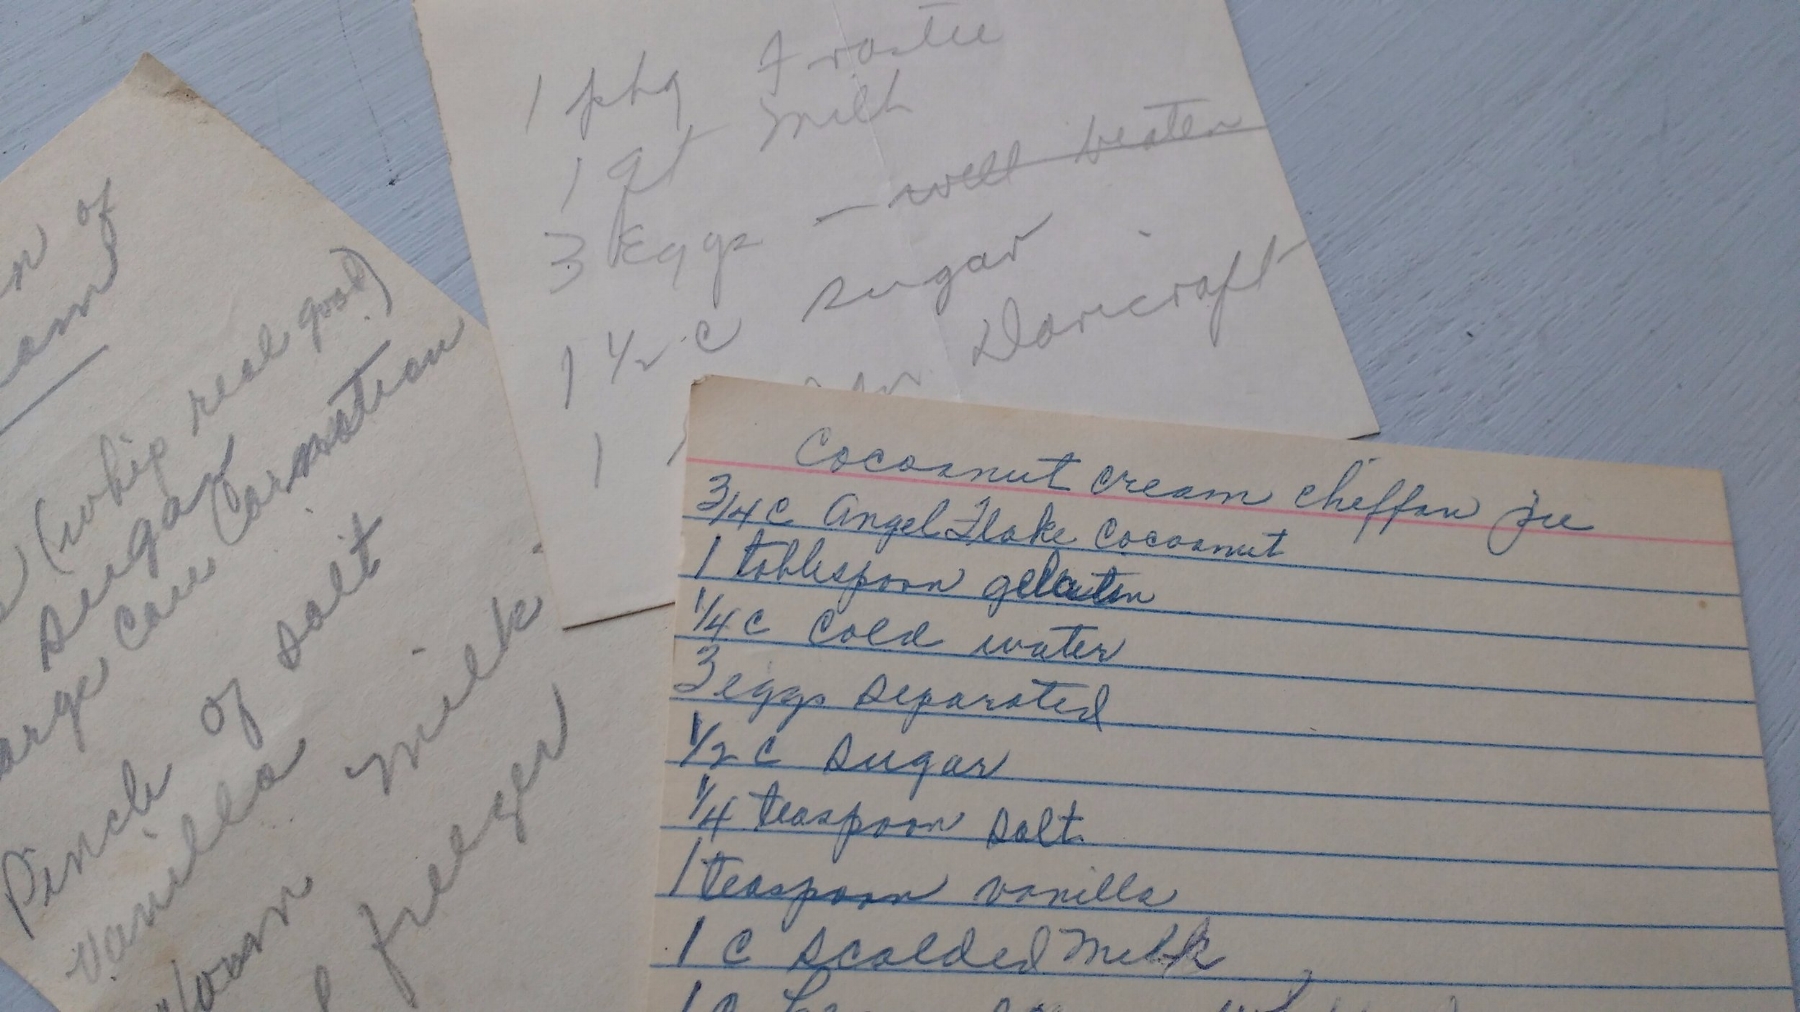 n of
eam
(whip real good)
sugar
arge can Carnation
Pinch of salt
Vanilla
Warm milk
freezer
1 pkg Frostee
1 qt milk
3 Eggs – well beaten
1 1/2 c sugar
1 Daricraft
Cocoanut cream cheffon pie
3/4 c Angel Flake Cocoanut
1 tablespoon gelatin
1/4 c cold water
3 eggs separated
1/2 c sugar
1/4 teaspoon salt
1 teaspoon vanilla
1 c scalded milk
1 c